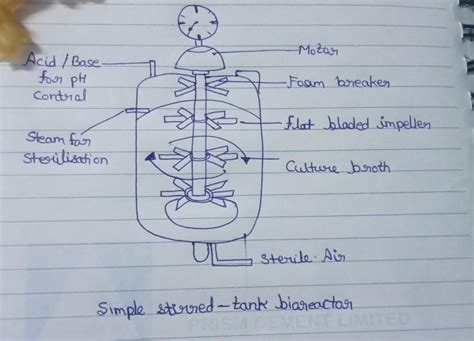 Acid / Base
for pH
Control
Steam for
Sterilisation
Motor
Foam breaker
flat bladed impeller
Culture broth
Sterile Air
Simple stirred-tank bioreactor
PRISM CEMENT LIMITED